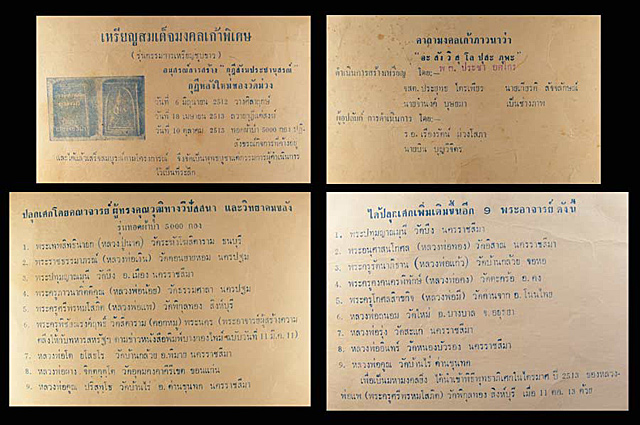 เหรียญสมเด็จมงคลเก้าพิเศษ
(รุ่นกรรมการเหรียญชุบขาว)
อนุสรณ์การสร้าง "กุฏิสังฆประชานุสรณ์"
กุฏิหลังใหม่ของวัดม่วง
วันที่ 6 มิถุนายน 2512 วางศิลาฤกษ์
วันที่ 10 เมษายน 2513
วันที่ 10 ตุลาคม 2513 ทอดผ้าป่า 5000 กอง
และได้แล้วเสร็จสมบูรณ์ตามโครงการณ์ จึงจัดเป็นพุทธบูชาแด่กรรมการผู้ดำเนินการ
ไว้เป็นที่ระลึก
คาถามงคลเก้าภาวนาว่า
"อะ สัง วิ สุ โล ปุ สะ ภุ พะ"
ดำเนินการสร้างเหรียญ โดย:– พ.ต. ประชา
จสต. ประยุทธ ไตรเพียร นายเกียรติ
นายณรงค์ บุษยมา เป็นช่างภาพ
ผู้อุปถัมภ์ การดำเนินการ โดย:–
ร.อ. เรืองรัตน์ ม่วงโสภา
นายบิน บุญวิจิตร
ปลุกเศกโดยคณาจารย์ ผู้ทรงคุณวุฒิทางวิปัสสนา และวิทยาคมขลัง
รุ่นทอดผ้าป่า 5000 กอง
1. พระเทพสิทธินายก (หลวงปู่นาค) วัดระฆังโฆสิตาราม ธนบุรี
2. พระราชธรรมาภรณ์ (หลวงพ่อเงิน) วัดดอนยายหอม นครปฐม
3. พระปทุมญาณมุนี วัดบึง อ.เมือง นครราชสีมา
4. พระครูภาวนากิตติคุณ (หลวงพ่อน้อย) วัดธรรมศาลา นครปฐม
5. พระครูศรีพรหมโสภิต (หลวงพ่อแพ) วัดพิกุลทอง สิงห์บุรี
6. พระครูพรหมวงศ์ฤทธิ์ วัดสีคาราม (ดอกหมู) พระนคร (พระอาจารย์ผู้สร้างความ
ขลังให้กับทหารสหรัฐฯ ตามข่าวหนังสือพิมพ์บางกอกโพสต์ฉบับวันที่ 11 มี.ค. 11)
7. หลวงพ่อโต วัดบ้านกล้วย อ.พิมาย นครราชสีมา
8. หลวงพ่อผาง จิตตคุตโต วัดอุดมคงคาคีรีเขต ขอนแก่น
9. หลวงพ่อคูณ ปริสุทโธ วัดบ้านไร่ อ.ด่านขุนทด นครราชสีมา
ได้ปลุกเศกเพิ่มเติมขึ้นอีก 9 พระอาจารย์ ดังนี้
1. พระปทุมญาณมุนี วัดบึง นครราชสีมา
2. พระอนุศาสนโกศล (หลวงพ่อทอง) วัดอิสาณ นครราชสีมา
3. พระครูรัตนาภิธาน (หลวงพ่อแก้ว) วัดบ้านกล้วย จอหอ
4. พระครูคงคนครพิทักษ์ (หลวงพ่อทอง) วัดตะคร้อ อ.คง
5. พระครูโกศลสาธกิจ (หลวงพ่อมี) วัดค่านจาก อ.โนนไทย
6. หลวงพ่อถนอม วัดใหม่ อ.บางบาล จ.อยุธยา
7. หลวงพ่อรุ่ง วัดสะแก นครราชสีมา
8. หลวงพ่ออินทร์ วัดหนองบัวรอง นครราชสีมา
9. หลวงพ่อคูณ วัดบ้านไร่ ด่านขุนทด
เพื่อเป็นมหามงคลยิ่ง ได้นำเข้าพิธีพุทธาภิเศกในไตรมาศ ปี 2513 ของหลวง-
พ่อแพ (พระครูศรีพรหมโสภิต) วัดพิกุลทอง สิงห์บุรี เมื่อ 11 ตค. 13 ด้วย